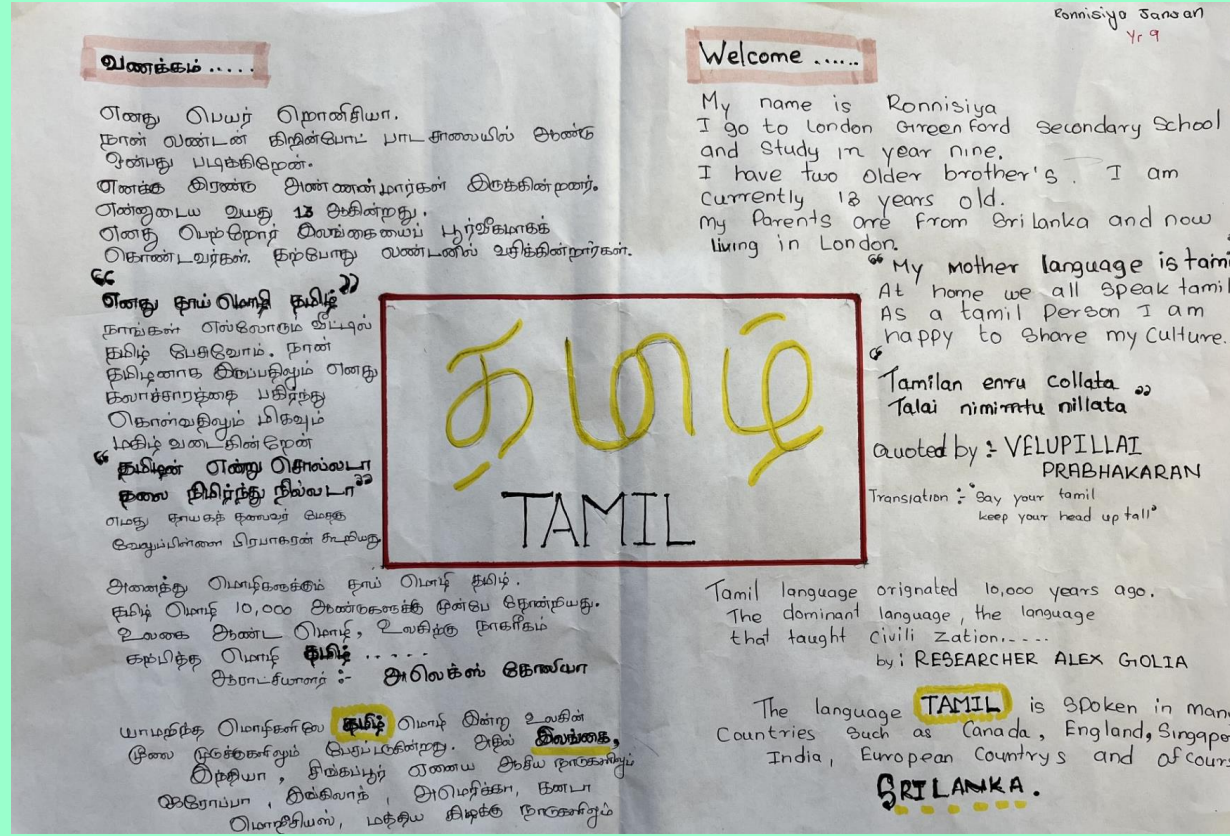 வணக்கம் .....
எனது பெயர் றொனிசியா.
நான் லண்டன் கிறின்போட் பாடசாலையில் ஆண்டு
ஒன்பது படிக்கிறேன்.
எனக்கு இரண்டு அண்ணன்மார்கள் இருக்கின்றனர்.
என்னுடைய வயது 13 ஆகின்றது.
எனது பெற்றோர் இலங்கையைப் பூர்வீகமாகக்
கொண்டவர்கள். தற்போது லண்டனில் வசிக்கின்றார்கள்.
“எனது தாய் மொழி தமிழ்”
நாங்கள் எல்லோரும் வீட்டில்
தமிழ் பேசுவோம். நான்
தமிழனாக இருப்பதிலும் எனது
கலாச்சாரத்தை பகிர்ந்து
கொள்வதிலும் மிகவும்
மகிழ்வடைகின்றேன்
“தமிழன் என்று சொல்லடா
தலை நிமிர்ந்து நில்லடா”
எமது தாயகத் தலைவர் மேதகு
வேலுப்பிள்ளை பிரபாகரன் கூறியது
அனைத்து மொழிகளுக்கும் தாய் மொழி தமிழ்.
தமிழ் மொழி 10,000 ஆண்டுகளுக்கு முன்பே தோன்றியது.
உலகை ஆண்ட மொழி, உலகிற்கு நாகரீகம்
கற்பித்த மொழி தமிழ் .....
ஆராட்சியாளர் :- அலெக்ஸ் கோலியா
யாமறிந்த மொழிகளிலே தமிழ் மொழி இன்று உலகின்
மூலை முடுக்குகளிலும் பேசப்படுகின்றது. அதில் இலங்கை,
இந்தியா, சிங்கப்பூர் ஏனைய ஆசிய நாடுகளிலும்
ஐரோப்பா, இங்கிலாந், அமெரிக்கா, கனடா
மொரீசியஸ், மத்திய கிழக்கு நாடுகளிலும்
தமிழ்
TAMIL
Ronnisiya Jansan
Yr 9
Welcome .....
My name is Ronnisiya
I go to London Greenford Secondary School
and Study in year nine.
I have two older brother's. I am
currently 13 years old.
My Parents are from Sri lanka and now
living in London.
“My mother language is tami
At home we all speak tamil
As a tamil Person I am
happy to share my Culture.
“Tamilan enru collata
Talai nimirntu nillata”
Quoted by :- VELUPILLAI
PRABHAKARAN
Translation :- "Say your tamil
keep your head up tall"
Tamil language orignated 10,000 years ago.
The dominant language, the language
that taught civili zation.....
by: RESEARCHER ALEX GOLIA
The language TAMIL is spoken in man
Countries such as Canada, England, Singapo
India, European Countrys and of cours
SRI LANKA.